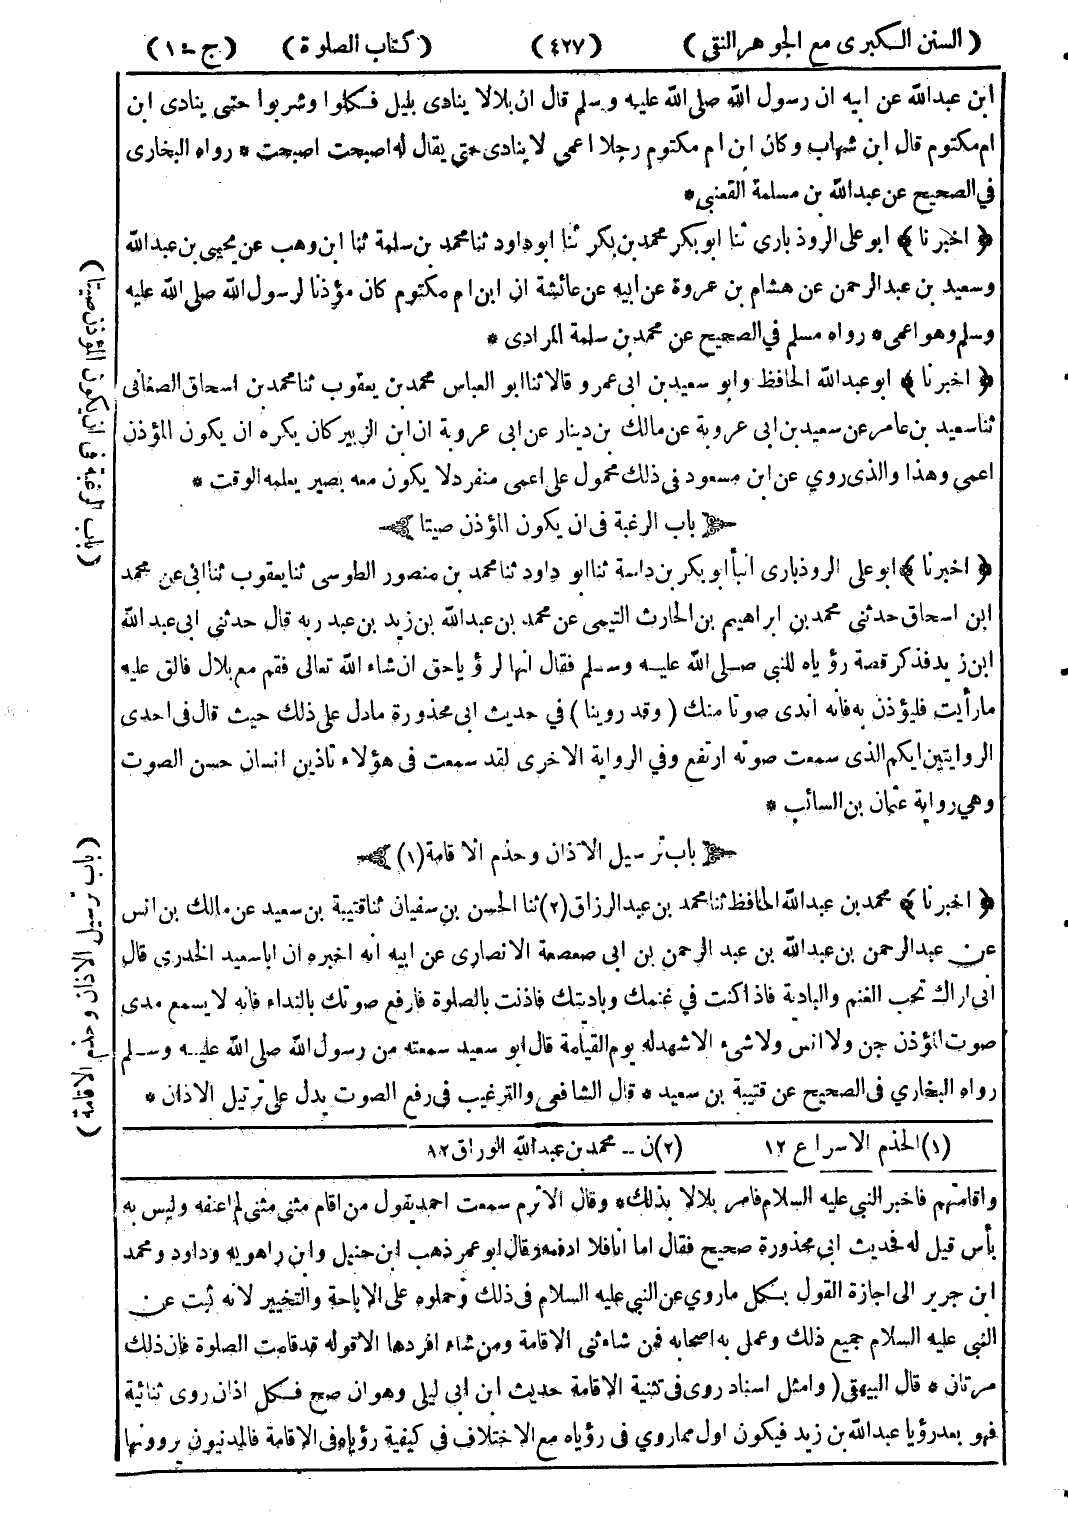 ( السنن الكبرى مع الجوهر النقى ) (٤٢٧) ( كتاب الصلوة ) ( ج - ١ )
ابن عبدالله عن ابيه ان رسول الله صلى الله عليه وسلم قال ان بلالا ينادى بليل فكلوا وشربوا حتى ينادى ابن
ام مكتوم قال ابن شهاب وكان ابن ام مكتوم رجلا اعمى لا ينادى حتى يقال له اصبحت اصبحت * رواه البخارى
في الصحيح عن عبدالله بن مسلمة القعنبى *
﴿ اخبرنا ﴾ ابو على الروذبارى ثنا ابو بكر محمد بن بكر ثنا ابو داود ثنا محمد بن سلمة ثنا ابن وهب عن يحيى بن عبدالله
وسعيد بن عبد الرحمن عن هشام بن عروة عن ابيه عن عائشة ان ابن ام مكتوم كان مؤذنا لرسول الله صلى الله عليه
وسلم وهو اعمى * رواه مسلم في الصحيح عن محمد بن سلمة المرادى *
﴿ اخبرنا ﴾ ابو عبدالله الحافظ وابو سعيد بن ابى عمرو قالا ثنا ابو العباس محمد بن يعقوب ثنا محمد بن اسحاق الصغانى
ثنا سعيد بن عامر عن سعيد بن ابى عروبة عن مالك بن دينار عن ابى عروبة ان ابن الزبير كان يكره ان يكون المؤذن
اعمى وهذا والذى روي عن ابن مسعود فى ذلك محمول على اعمى منفرد لا يكون معه بصير يعلمه الوقت *
باب الرغبة فى ان يكون المؤذن صيتا
﴿ اخبرنا ﴾ ابو على الروذبارى انبأ ابو بكر بن داسة ثنا ابو داود ثنا محمد بن منصور الطوسى ثنا يعقوب ثنا ابى عن محمد
ابن اسحاق حدثنى محمد بن ابراهيم بن الحارث التيمى عن محمد بن عبدالله بن زيد بن عبد ربه قال حدثنى ابى عبد الله
ابن زيد فذكر قصة رؤياه للنبى صلى الله عليه وسلم فقال انها لرؤيا حق ان شاء الله تعالى فقم مع بلال فالق عليه
ما رأيت فليؤذن به فانه اندى صوتا منك ( وقد روينا ) في حديث ابى محذورة ما دل على ذلك حيث قال فى احدى
الروايتين ايكم الذى سمعت صوته ارتفع وفي الرواية الاخرى لقد سمعت فى هؤلاء تاذين انسان حسن الصوت
وهي رواية عثمان بن السائب *
باب ترسيل الاذان وحذم الاقامة (١)
﴿ اخبرنا ﴾ محمد بن عبدالله الحافظ ثنا محمد بن عبدالرزاق (٢) ثنا الحسن بن سفيان ثنا قتيبة بن سعيد عن مالك بن انس
عن عبدالرحمن بن عبدالله بن عبد الرحمن بن ابى صعصعة الانصارى عن ابيه انه اخبره ان اباسعيد الخدري قال
انى اراك تحب الغنم والبادية فاذا كنت في غنمك وباديتك فاذنت بالصلوة فارفع صوتك بالنداء فانه لا يسمع مدى
صوت المؤذن جن ولا انس ولا شىء الا شهد له يوم القيامة قال ابو سعيد سمعته من رسول الله صلى الله عليه وسلم
رواه البخاري فى الصحيح عن قتيبة بن سعيد * قال الشافعى والترغيب فى رفع الصوت يدل على ترتيل الاذان *
(١) الحذم الاسراع ١٢ (٢) ن -- محمد بن عبدالله الوراق ١٢
واقامتهم فاخبر النبى عليه السلام فامر بلالا بذلك * وقال الاثرم سمعت احمد يقول من اقام مثنى مثنى لم اعنفه وليس به
بأس قيل له فحديث ابى محذورة صحيح فقال اما انا فلا ادفعه وقال ابو عمر ذهب ابن حنبل وابن راهويه وداود ومحمد
ابن جرير الى اجازة القول بكل ما روي عن النبى عليه السلام فى ذلك وحملوه على الاباحة والتخيير لانه ثبت عن
النبى عليه السلام جميع ذلك وعمل به اصحابه فمن شاء ثنى الاقامة ومن شاء افردها الا قوله قد قامت الصلوة فان ذلك
مرتان * قال البيهقى ( وامثل اسناد روى فى تثنية الاقامة حديث ابن ابى ليلى وهو ان صح فكل اذان روى ثنائية
فهو بعد رؤيا عبدالله بن زيد فيكون اول مما روي فى رؤياه مع الاختلاف في كيفية رؤياه فى الاقامة فالمدنيون يروونها
( باب الرغبة فى ان يكون المؤذن صيتا )
( باب ترسيل الاذان وحذم الاقامة )